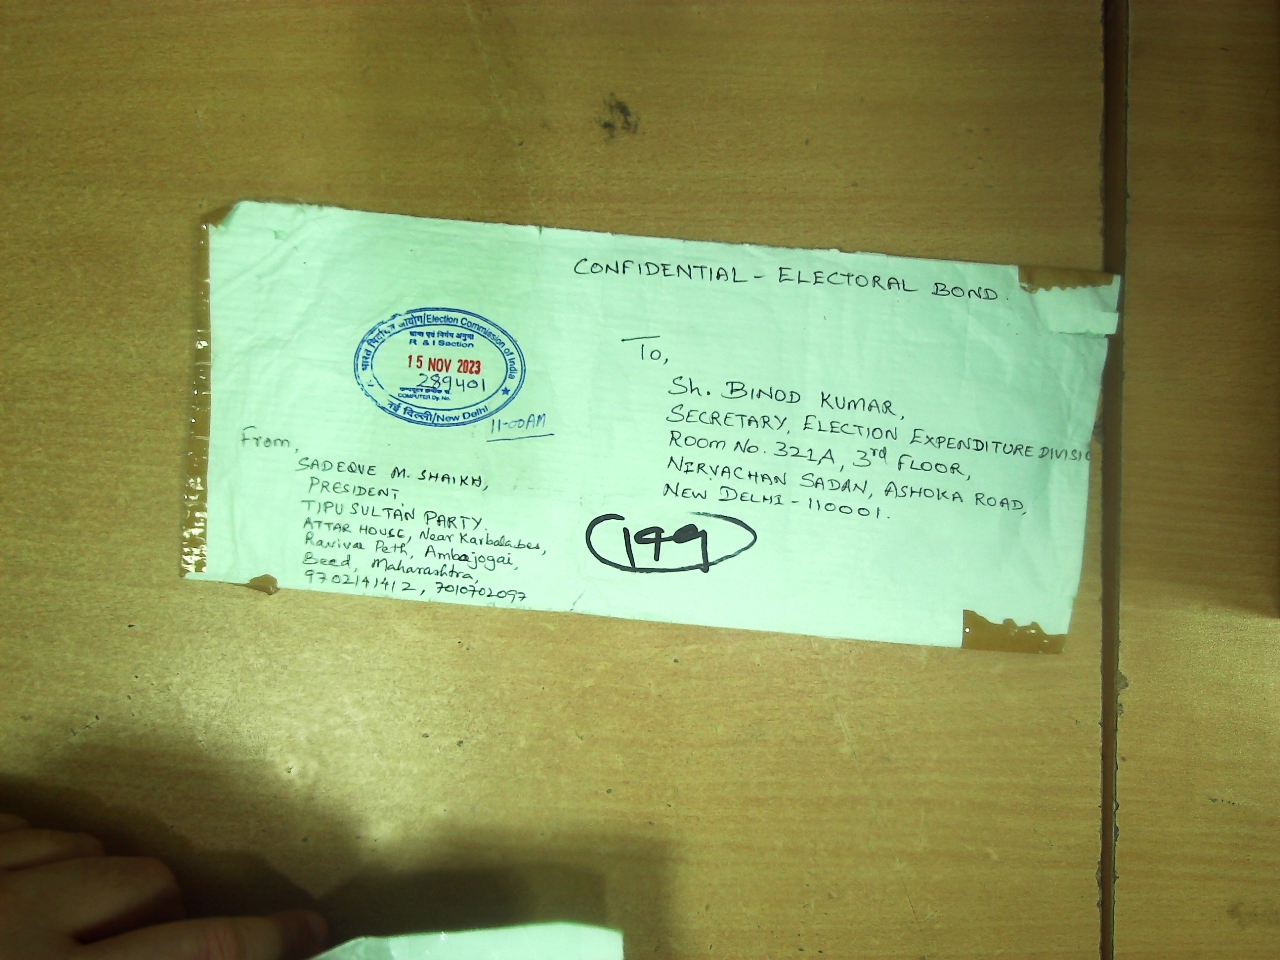 CONFIDENTIAL - ELECTORAL BOND.
भारत निर्वाचन आयोग/Election Commission of India
R & I Section
15 NOV 2023
289401
COMPUTER Dy. No.
नई दिल्ली/New Delhi
11-00AM
To,
Sh. BINOD KUMAR,
SECRETARY, ELECTION EXPENDITURE DIVISIO
ROOM No. 321A, 3rd FLOOR,
NIRVACHAN SADAN, ASHOKA ROAD,
NEW DELHI - 110001.
From,
SADEQUE M. SHAIKH,
PRESIDENT,
TIPU SULTAN PARTY.
ATTAR HOUSE, Near Karbalabes,
Ravivar Peth, Ambajogai,
Beed, Maharashtra,
9702141412, 7010702097
199